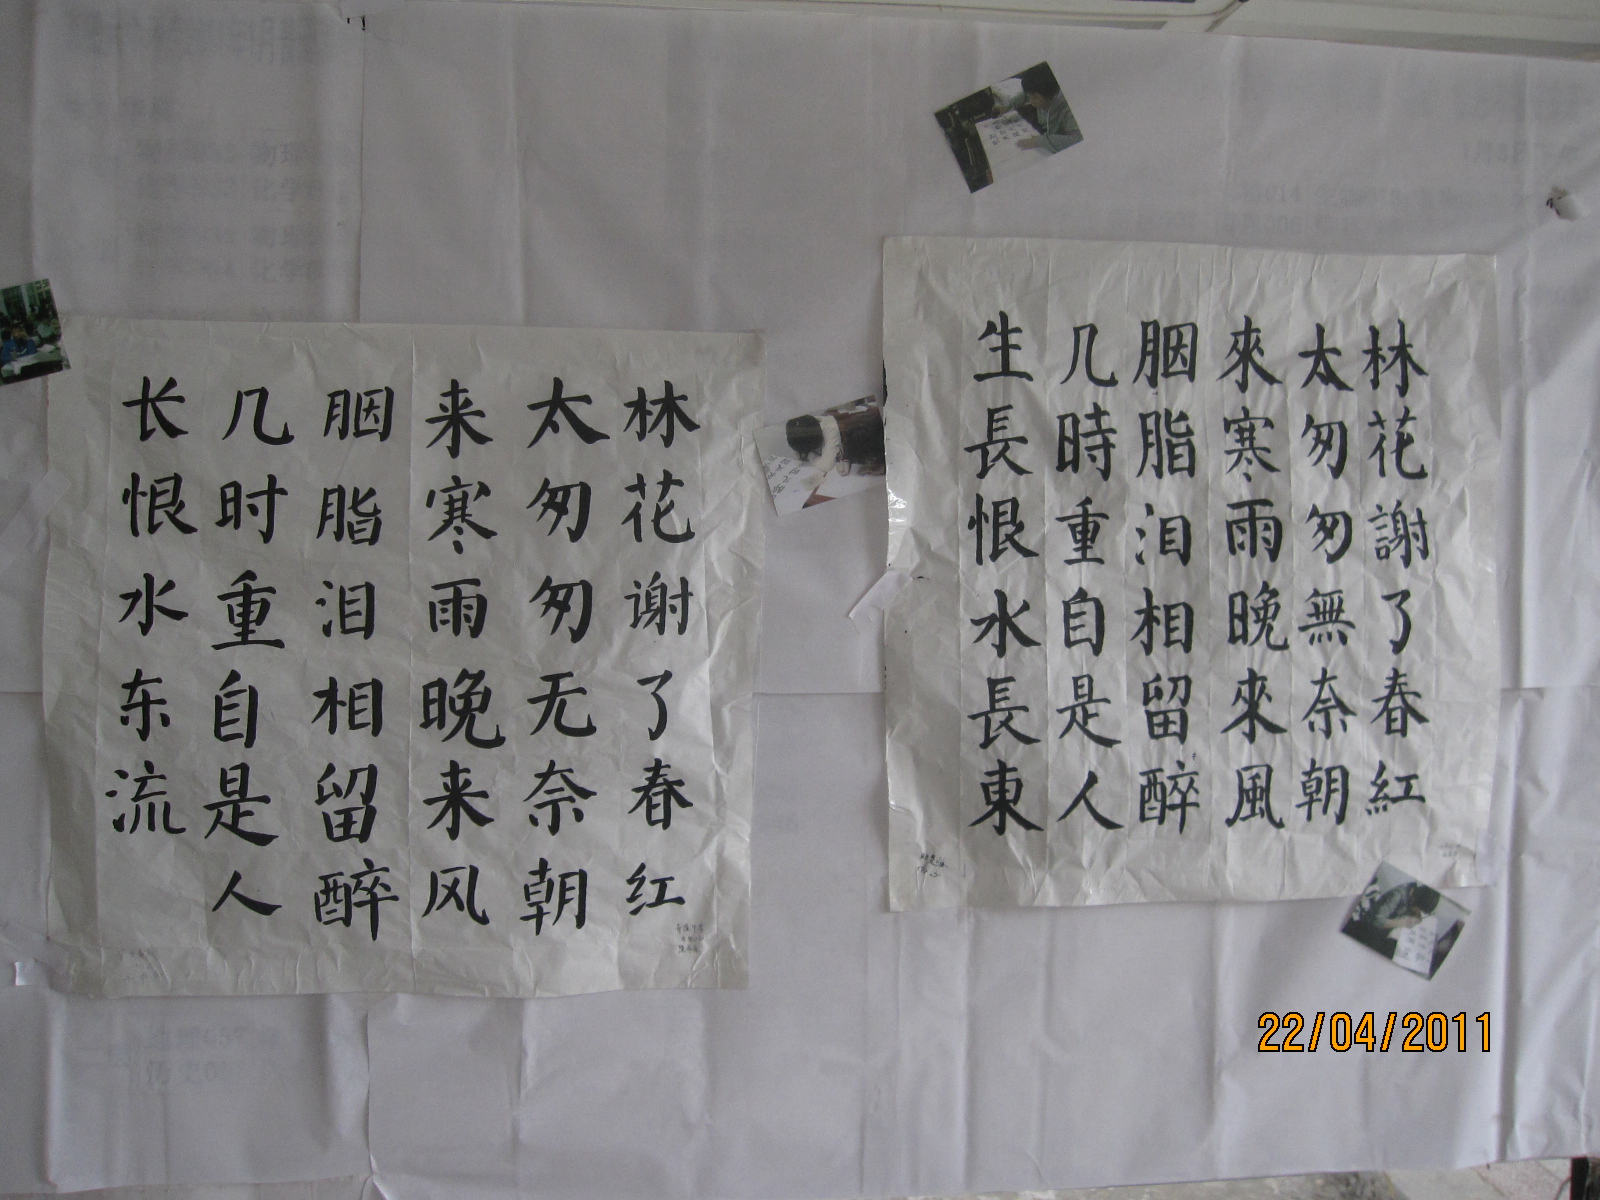 林花谢了春红
太匆匆无奈朝
来寒雨晚来风
胭脂泪相留醉
几时重自是人
长恨水东流
林花謝了春紅
太匆匆無奈朝
來寒雨晚來風
胭脂泪相留醉
几時重自是人
生長恨水長東
22/04/2011